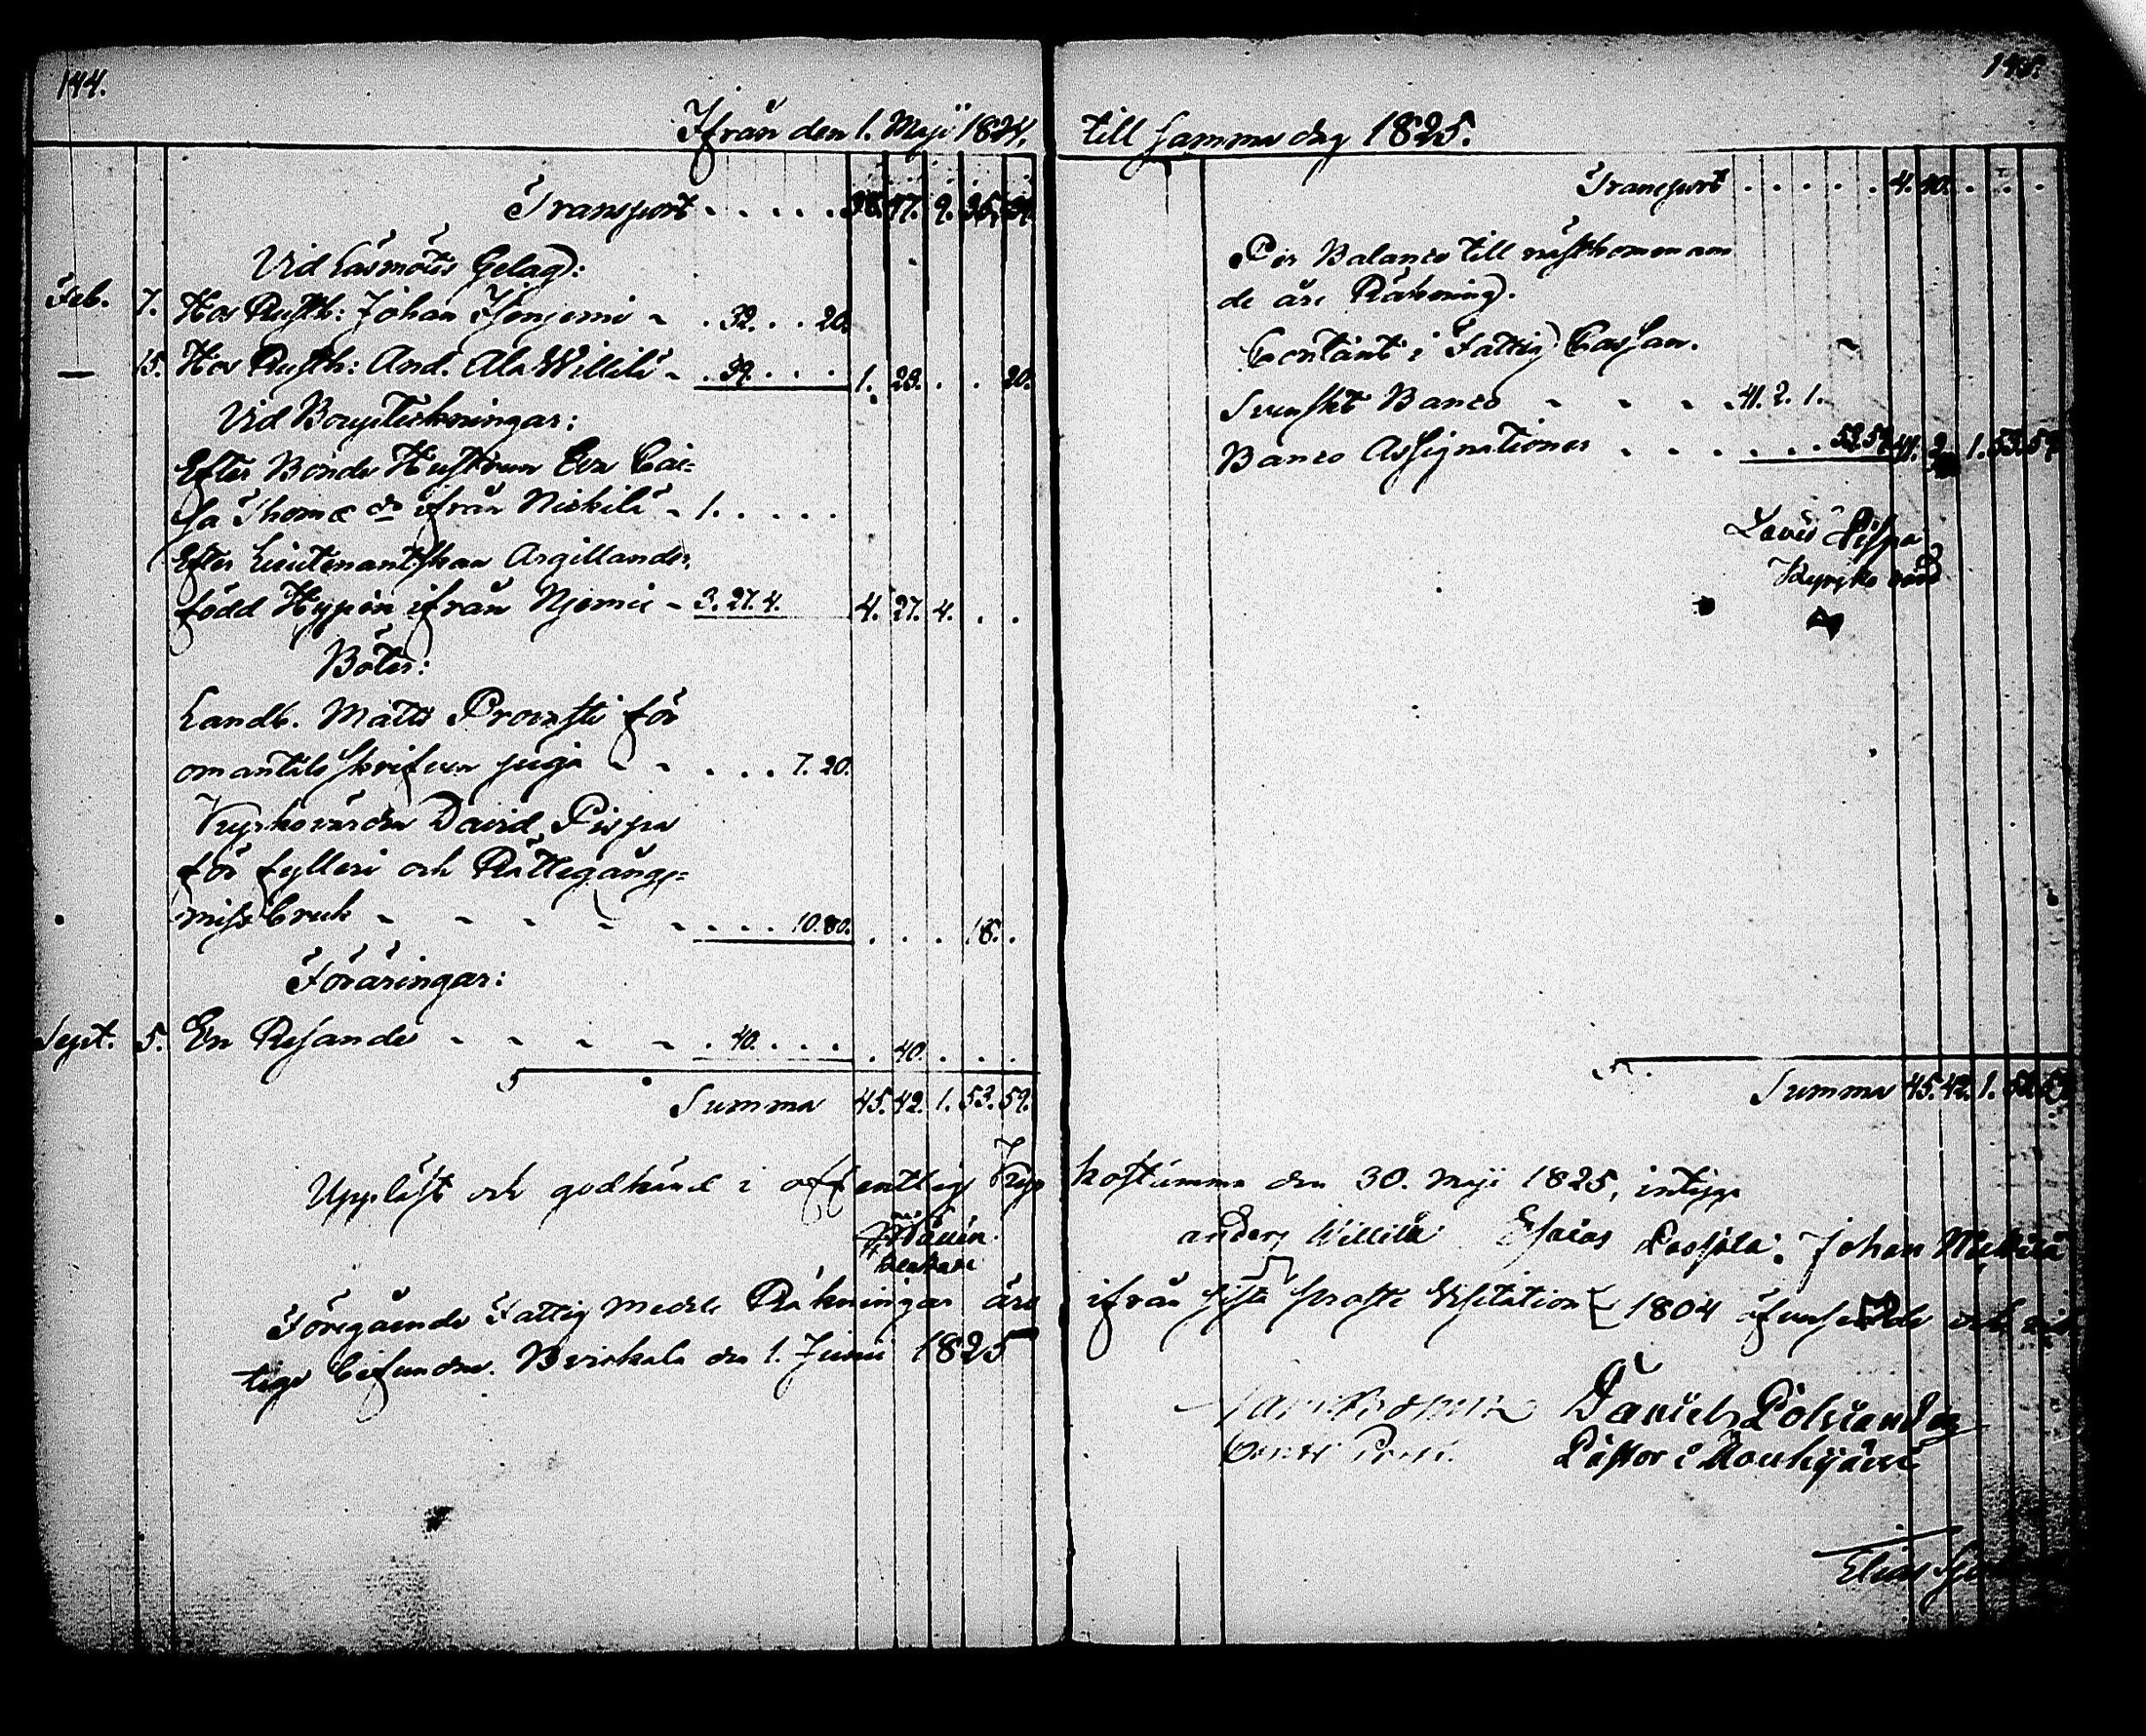 144.
Ifrån den 1. Maji 1824.
Transport . . . . . 38. 47. 9. 35. 39.
Vid Läsmötes Gelag:
Feb. 7. Hos Rusth: Johan Isonjemi - . 32. . . 20.
— 15. Hos Rusth: And. Ala Willilä - . 39. . . . 1. 23. . . 20.
Vid Bouptekningar:
Efter Bonde Hustrun Eva Cai=
sa Thomæ dr ifrån Niskilä - 1. . . . .
Efter Lieutenantskan Argillander,
född Hypén ifrån Njemis - 3. 27. 4. 4. 27. 4. . .
Böter:
Landb. Matts Provasti för
omantals skrifven piga - - . . . 7. 20.
Kyrkovärden David Pispa
för fylleri och Rättegångs=
missbruk - - - - - . . . . 10. 80. . . . 18. .
Föräringar:
Sept. 5. En Resande - - - - . 40. . . . . 40. . . .
Summa 45. 42. 1. 53. 59.
145.
till samma dag 1825.
Transport . . . . . 4. 40. . . .
Per Balance till nästkomman
de års Räkning.
Contant i Fattig Cassan.
Svenskt Banco - - - - 41. 2. 1.
Banco Assignationer . . . . . . 53. 59. 41. 2. 1. 53. 59.
Pispa
Kyrko värd
Summa 45. 42. 1. 53. 59.
Uppläst och godkänd i offentlig Kyr kostämma den 30. Maji 1825, intyga
Anders Willilä Esaias Johan
Föregående Fattig Medels Räkningar äro ifrån sista Prosts Visitation 1804
tige befundne. Birkala den 1. Junii 1825
Daniel
Pastor i Moukijärvi
Elias